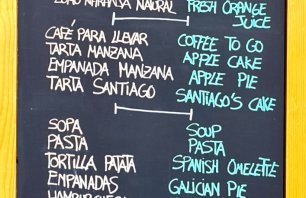 ZUMO NARANJA NATURAL
FRESH ORANGE
JUICE
CAFÉ PARA LLEVAR
TARTA MANZANA
EMPANADA MANZANA
TARTA SANTIAGO
COFFEE TO GO
APPLE CAKE
APPLE PIE
SANTIAGO'S CAKE
SOPA
PASTA
TORTILLA PATATA
EMPANADAS
HAMBURGUESA
SOUP
PASTA
SPANISH OMELETTE
GALICIAN PIE